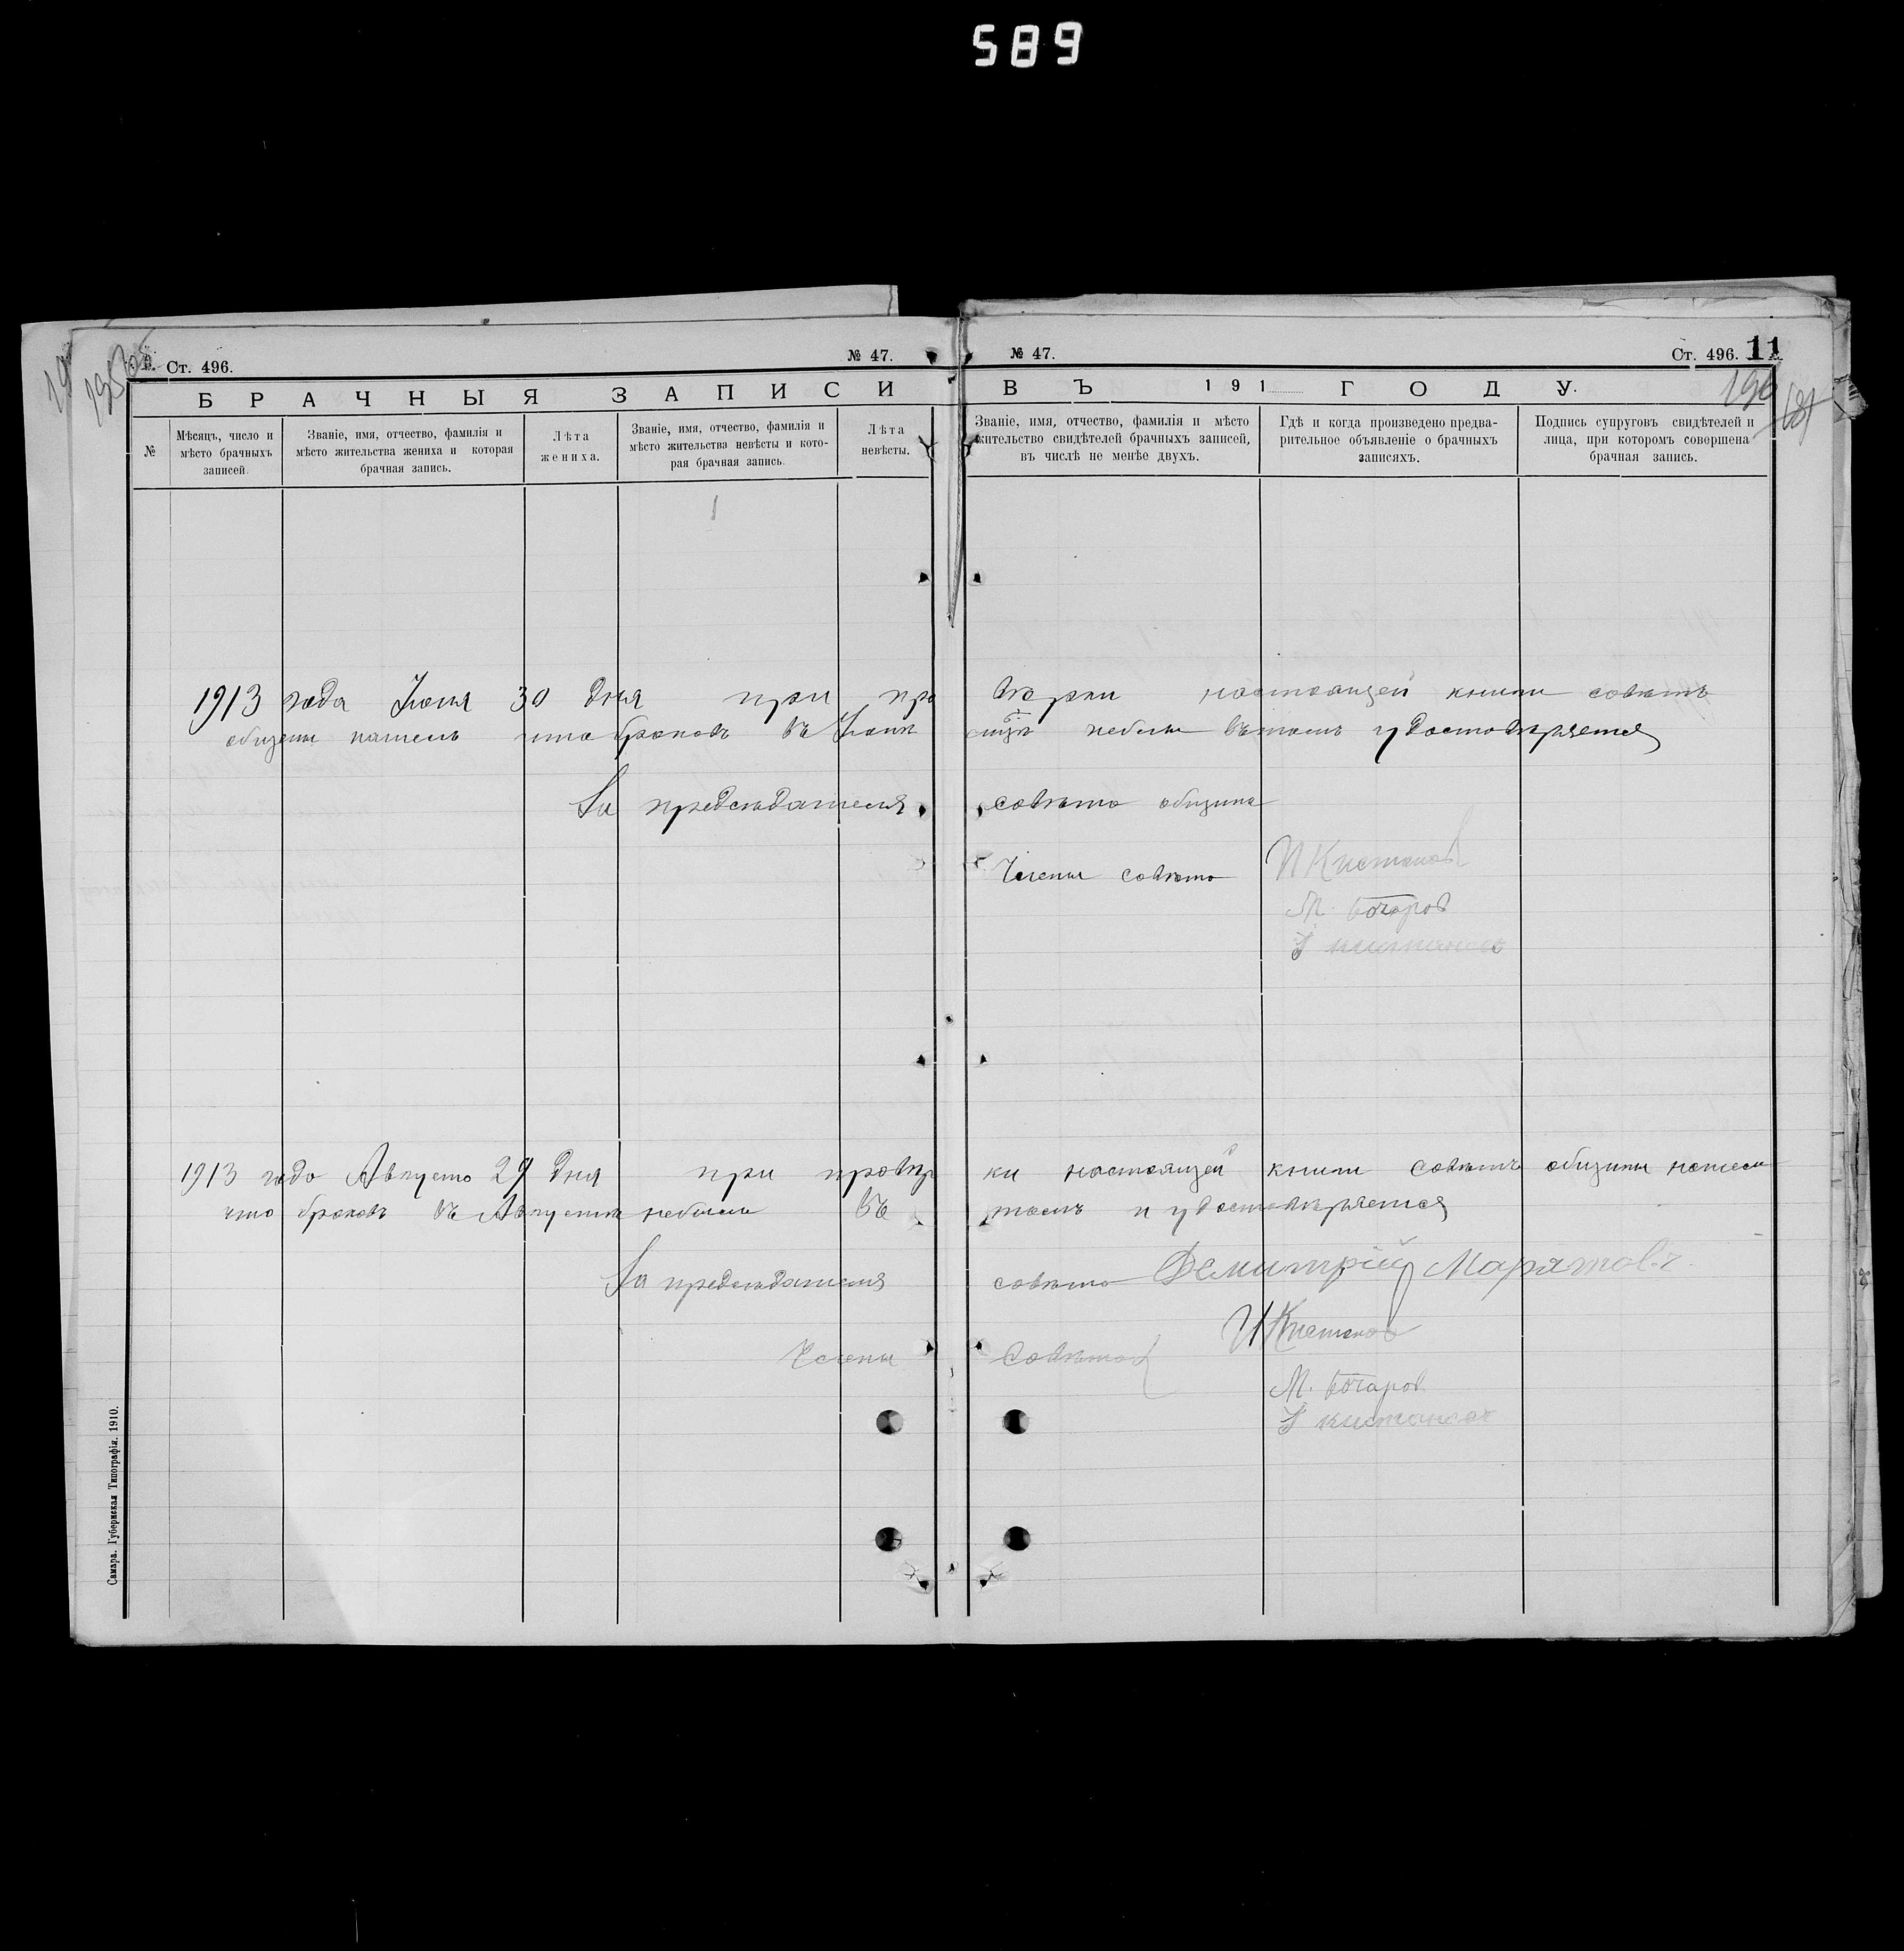 589
Ст. 496.
№ 47.
№ 47.
Ст. 496. 11
БРАЧНЫЯ ЗАПИСИ
ВЪ 191 ГОДУ.
196
№
Мѣсяцъ, число и
мѣсто брачныхъ
записей
Званіе, имя, отчество, фамилія и
мѣсто жительства жениха и которая
брачная запись.
Лѣта
жениха.
Званіе, имя, отчество, фамилія и
мѣсто жительства невѣсты и кото-
рая брачная запись.
Лѣта
невѣсты.
Званіе, имя, отчество, фамилія и мѣсто
жительство свидѣтелей брачныхъ записей,
въ числѣ не менѣе двухъ.
Гдѣ и когда произведено предва-
рительное объявленіе о брачныхъ
записяхъ.
Подпись супруговъ свидѣтелей и
лица, при которомъ совершена
брачная запись.
1913 года Іюля 30 дня при про вѣрки настоящей книги совѣтъ
общены нашелъ что браковъ въ Іюлѣ небыли вътомъ удостовѣряется
За предсѣдателя совѣта общины
Члены совѣта И Кистанов
М. Бочаров
1913 года Августа 29 дня при провѣр ки настоящей книги совѣтъ общины нашелъ
что браковъ въ Августѣ небыли въ томъ и удостовѣряется
За предсѣдателя совѣта Демитрій Маратовъ
И Кистанов
Члены Совѣта
М. Бочаров
Самара. Губернская Типографія. 1910.